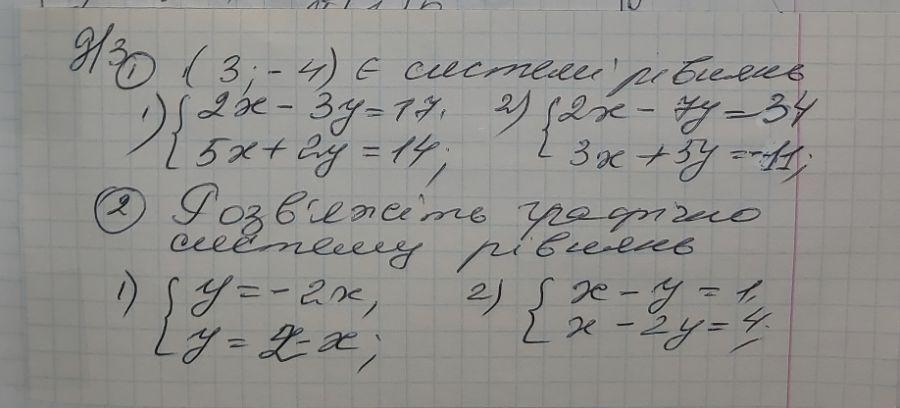 Д/З
① (3; -4) є системі рівнянь
1) { 2x - 3y = 17, 2) { 2x - 7y = 34
5x + 2y = 14; 3x + 5y = -11;
② Розв'яжіть графічно
систему рівнянь
1) { y = -2x, 2) { x - y = 1,
y = - x; x - 2y = 4;